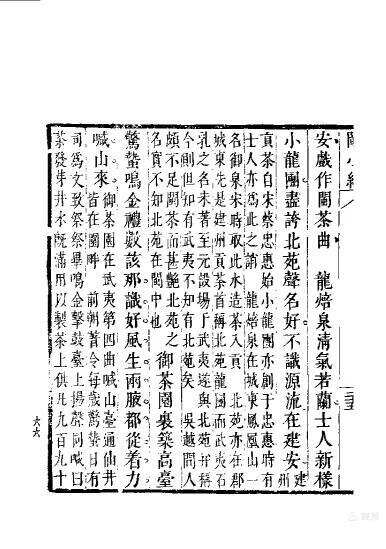 閩小紀
安戲作閩茶曲　龍焙泉清氣若蘭士人新樣
小龍團盡誇北苑聲名好不識源流在建安 建州
貢茶自宋蔡忠惠始小龍團亦創于忠惠時有
士人亦爲此之誚　龍焙泉在城東鳳凰山一
名御泉宋時取此水造茶入貢　北苑亦在郡
城東先是建州貢茶首稱北苑龍團而武夷石
乳之名未著至元設場于武夷遂與北苑並稱
今則但知有武夷不知有北苑矣　吳越間人
頗不足閩茶而甚艷北苑之
名實不知北苑在閩中也　御茶園裏築高臺
驚蟄鳴金禮數該那識好風生兩腋都從着力
喊山來 御茶園在武夷第四曲喊山臺通仙井
皆在園畔　前朝著令每歲驚蟄日有
司爲文致祭祭畢鳴金擊鼓臺上揚聲同喊曰
茶發芽井水既滿用以製茶上供凡九百九十
六六